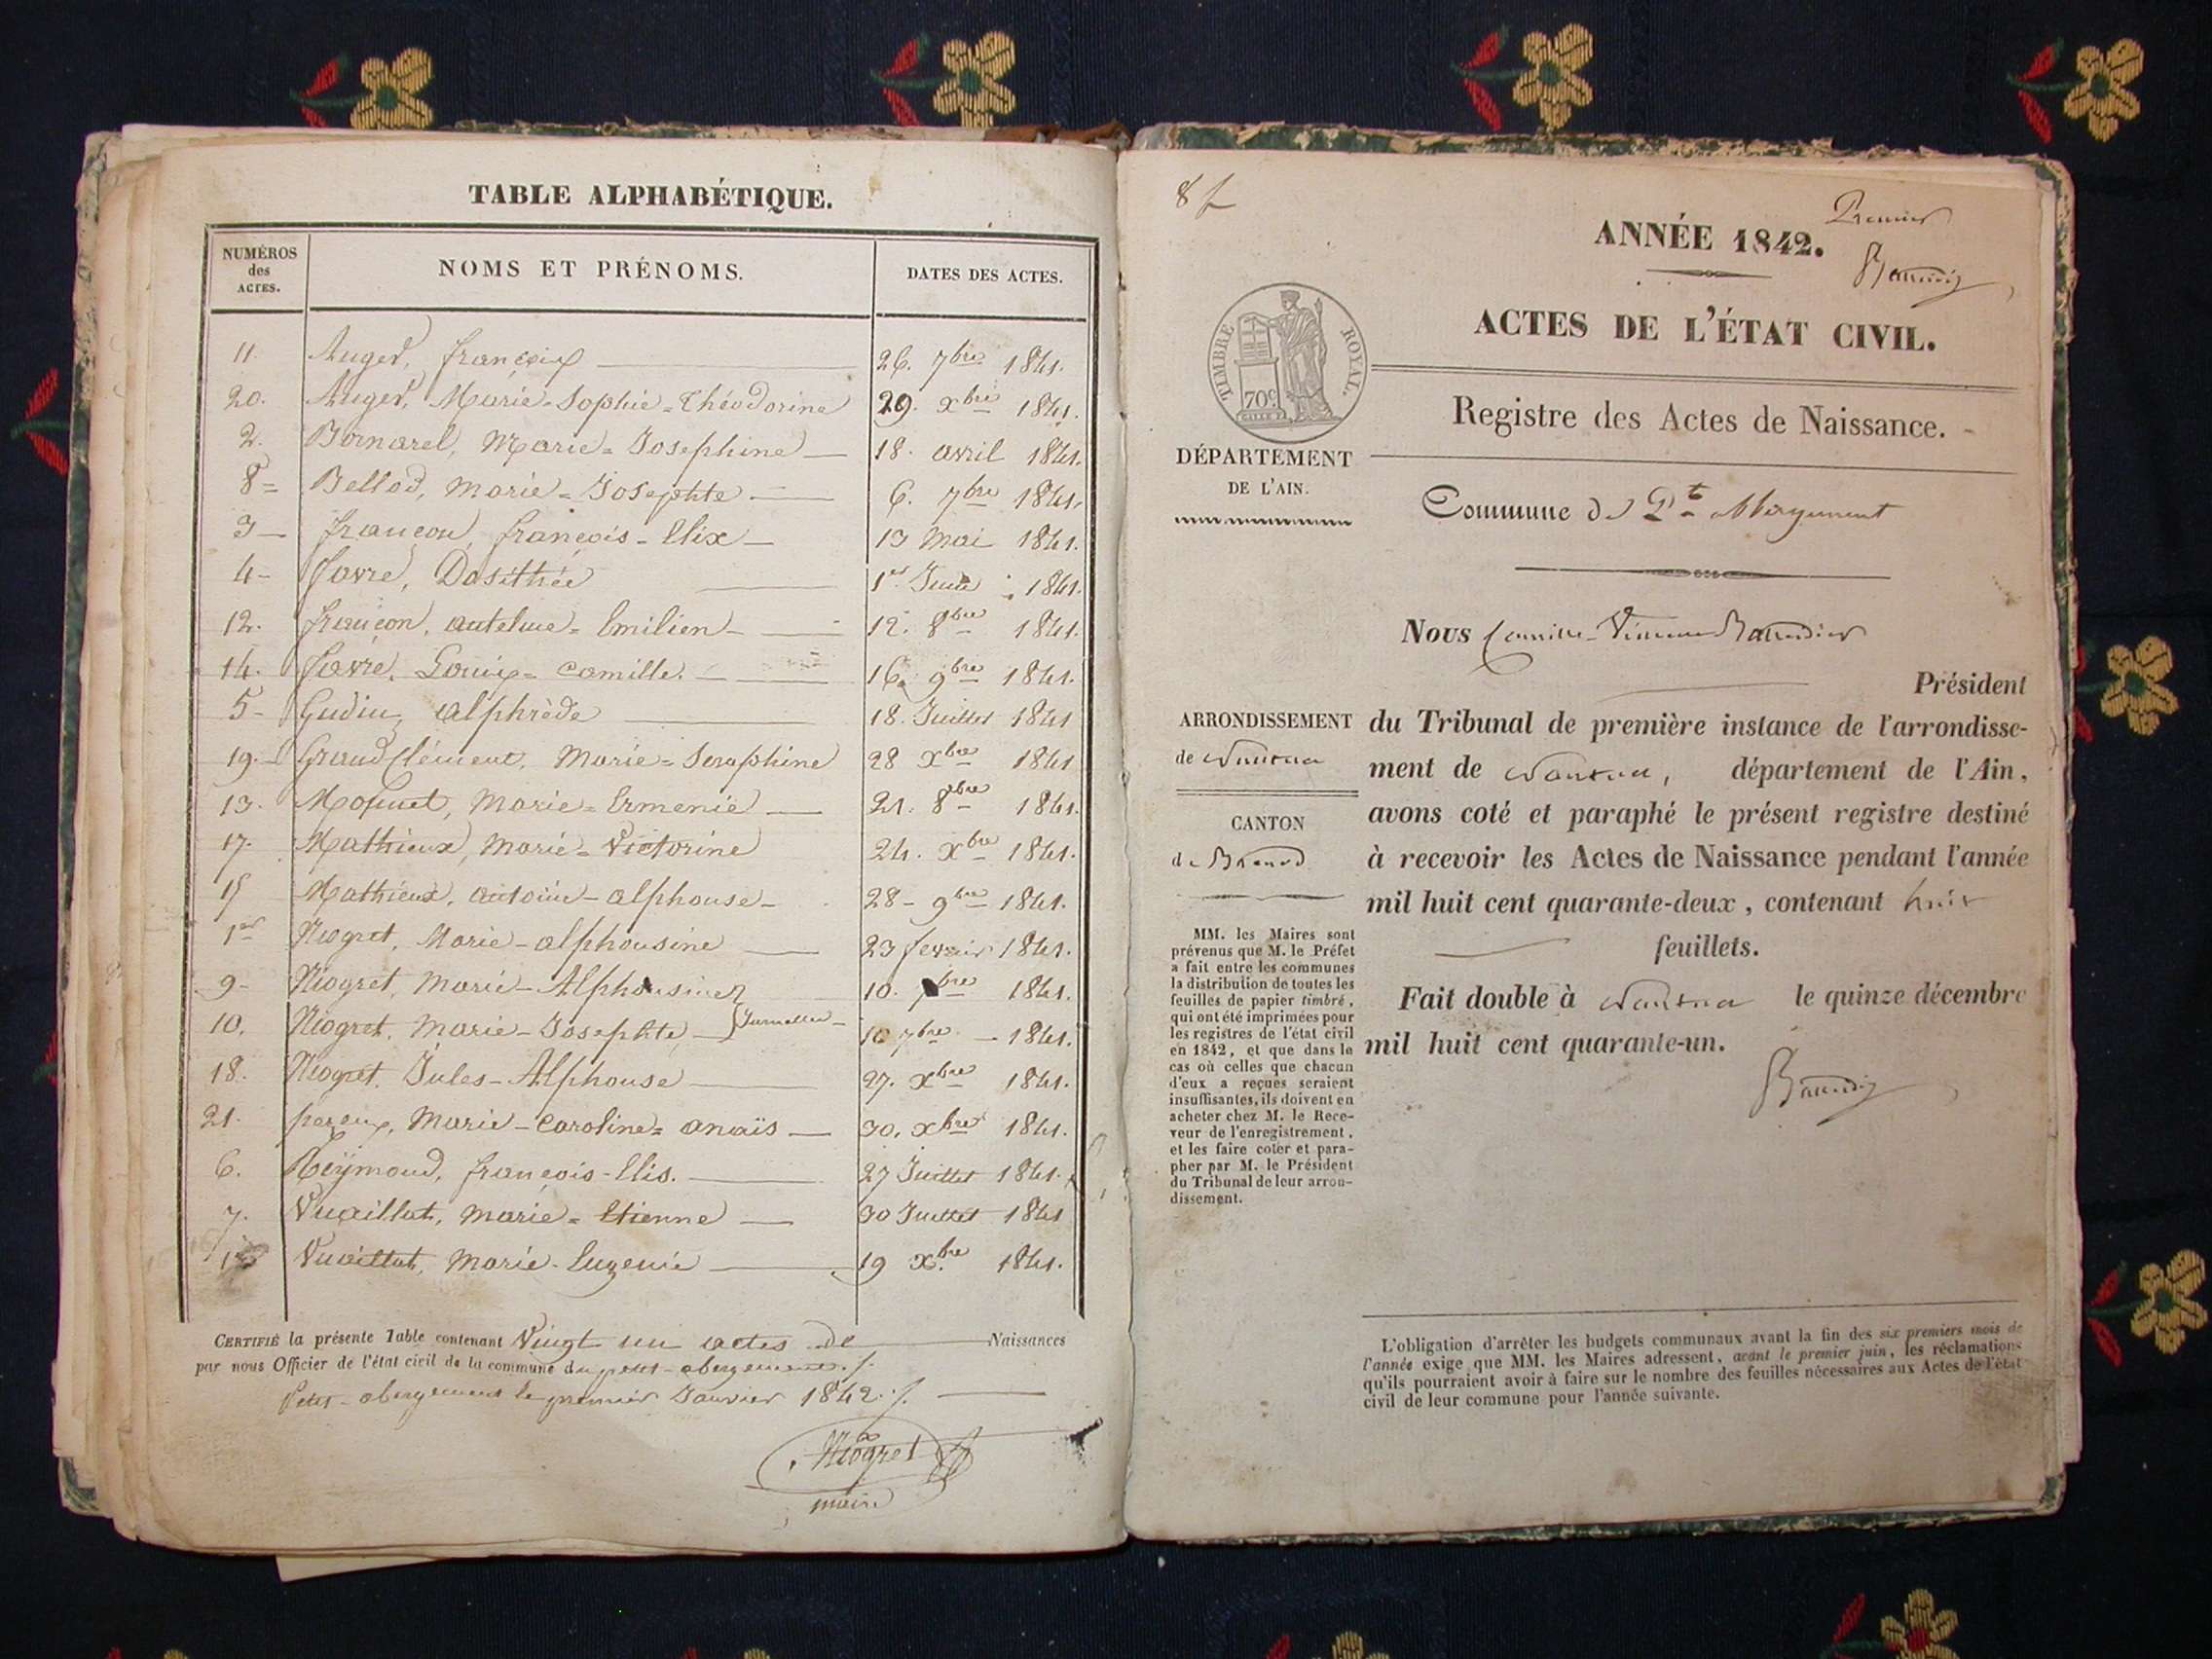 TABLE ALPHABÉTIQUE.
NUMÉROS des ACTES. NOMS ET PRÉNOMS. DATES DES ACTES.
11. Auger, françois 26. 7bre 1841.
20. Auger, Marie=Sophie=Théodorine 29. xbre 1841.
2. Bornarel, Marie=Josephine 18. avril 1841.
8= Bellod, Marie=Josephte 6. 7bre 1841.
3 françon, françois-Elix 13 Mai 1841.
4- favre, Dosithée 1er Juin 1841.
12. françon, antelme=Emilien 12. 8bre 1841.
14. favre, Louis=Camille. 16. 9bre 1841.
5- Gudin, alphrède 18. Juillet 1841
19. GrandClément, Marie=Seraphine 28 xbre 1841
13. Moynet, Marie=Ermenie 21. 8bre 1841.
17. Mathieux, Marie=Victorine 24. xbre 1841.
15 Mathieux, antoine-alphonse 28- 9bre 1841.
1er Niogret, Marie-alphonsine 23 fevrier 1841.
9- Niogret, Marie-Alphonsine 10. 7bre 1841.
10. Niogret, Marie-Josephte, Jumelles 10 7bre 1841.
18. Niogret, Jules-Alphonse 27. xbre 1841.
21. Marie-Caroline=anaïs 30. xbre 1841.
6. Reymond, françois-Elis. 27 Juillet 1841.
7. Vuaillat, Marie=Etienne 30 Juillet 1841
Vuaillat, Marie-Eugenie 19 xbre 1841.
CERTIFIÉ la présente Table contenant Vingt un actes de Naissances
par nous Officier de l'état civil de la commune du petit-abergement./.
Petit-abergement le premier Janvier 1842./.
Niogret
maire
8 f
Premier
ANNÉE 1842.
Baudin
ACTES DE L'ÉTAT CIVIL.
TIMBRE ROYAL.
70c
Registre des Actes de Naissance.
DÉPARTEMENT
DE L'AIN.
Commune de Pt Abergement
Nous Camille
Président
ARRONDISSEMENT
de Nantua
CANTON
de Brenod
du Tribunal de première instance de l'arrondisse-
ment de Nantua, département de l'Ain,
avons coté et paraphé le présent registre destiné
à recevoir les Actes de Naissance pendant l'année
mil huit cent quarante-deux, contenant huit
feuillets.
Fait double à Nantua le quinze décembre
mil huit cent quarante-un.
MM. les Maires sont
prévenus que M. le Préfet
a fait entre les communes
la distribution de toutes les
feuilles de papier timbré,
qui ont été imprimées pour
les registres de l'état civil
en 1842, et que dans le
cas où celles que chacun
d'eux a reçues seraient
insuffisantes, ils doivent en
acheter chez M. le Rece-
veur de l'enregistrement,
et les faire coter et para-
pher par M. le Président
du Tribunal de leur arron-
dissement.
L'obligation d'arrêter les budgets communaux avant la fin des six premiers mois de
l'année exige que MM. les Maires adressent, avant le premier juin, les réclamations
qu'ils pourraient avoir à faire sur le nombre des feuilles nécessaires aux Actes de l'état
civil de leur commune pour l'année suivante.